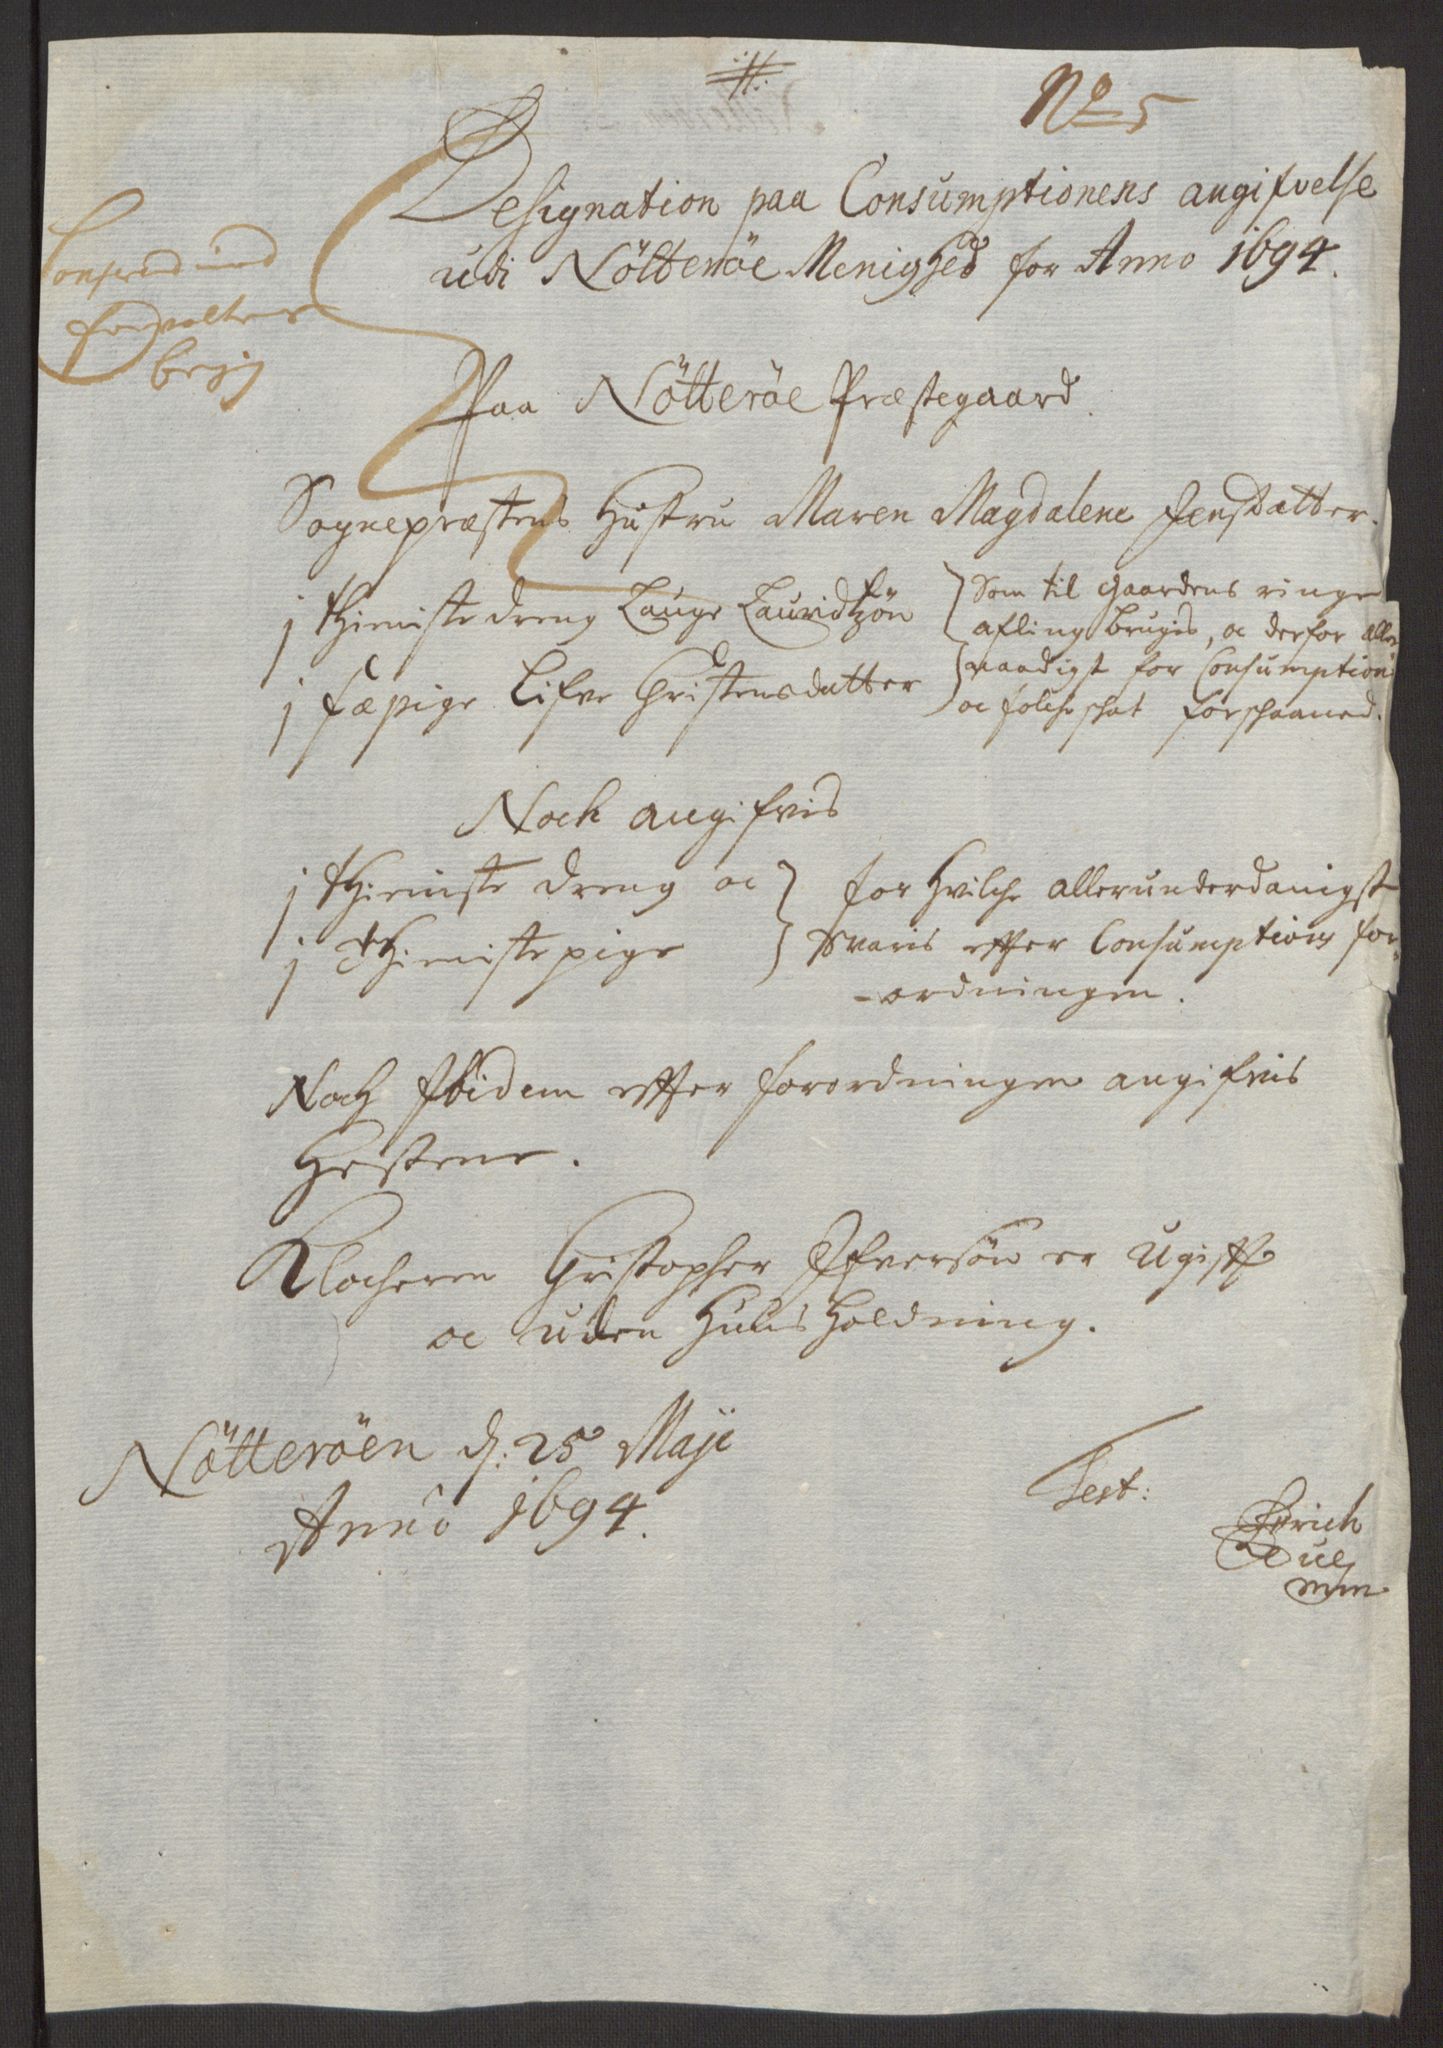 No 5
Designation paa Consumptionens angifvelse
udi Nötteröe Menighed for Anno 1694.
Paa Nötteröe Præstegaard.
Sognepræstens Hustru Maren Magdalene Jensdatter.
j thieniste dreng Lauge Lauridtzön
j fæpige Lifve Christensdatter
Som til Gaardens ringe
afling brugis, oc derfor aller
naadigst for Consumption
oc folcheschat forschaaned.
Noch angifvis
j thieniste dreng oc
j thienistepige
for hvilche allerunderdanigst
svaris effter Consumptions for-
-ordningen.
Noch Ibidem effter forordningen angifvis
Hestene.
Klocheren Christopher Ifversön er Ugifft
oc uden Huusholdning.
Nötteröen d: 25 Maji
Anno 1694.
Test:
Erich
mm